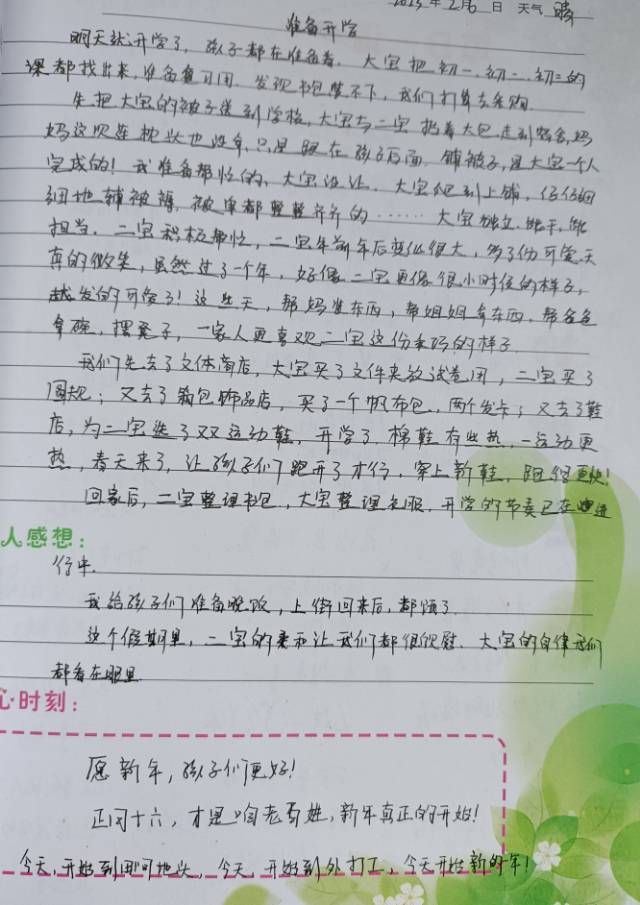 2023年2月6日 天气 晴
准备开学
明天就开学了，孩子都在准备着。大宝把初一、初二、初三的
课都找出来，准备复习用。发现书包装不下，我们打算去采购
先把大宝的被子送到学校，大宝与二宝抬着大包走到宿舍，妈
妈这次连枕头也没拿，只是跟在孩子后面。铺被子，是大宝一个人
完成的！我准备帮忙的，大宝没让。大宝爬到上铺，仔仔细
细地铺被褥，被单都整整齐齐的……大宝独立、能干、能
担当。二宝积极帮忙，二宝年前年后变化很大，多了份可爱天
真的微笑，虽然过了一个年，好像二宝更像很小时候的样子，
越发的可爱了！这些天，帮妈拿东西，帮姐姐拿东西，帮爸爸
拿碗，摆凳子，一家人更喜欢二宝这份乖巧的样子
我们先去了文体商店，大宝买了文件夹放试卷用，二宝买了
圆规；又去了箱包饰品店，买了一个帆布包，两个发卡；又去了鞋
店，为二宝选了双运动鞋，开学了，棉鞋有些热，一运动更
热，春天来了，让孩子们跑开了才行，穿上新鞋，跑得更快！
回家后，二宝整理书包，大宝整理衣服，开学的节奏已在进
人感想：
行中.
我给孩子们准备晚饭，上街回来后，都饿了
这个假期里，二宝的柔和让我们都很欣慰。大宝的自律我们
都看在眼里
心时刻：
愿新年，孩子们更好！
正月十六，才是咱老百姓，新年真正的开始！
今天，开始到田间地头，今天，开始到外打工，今天开始新的一年！